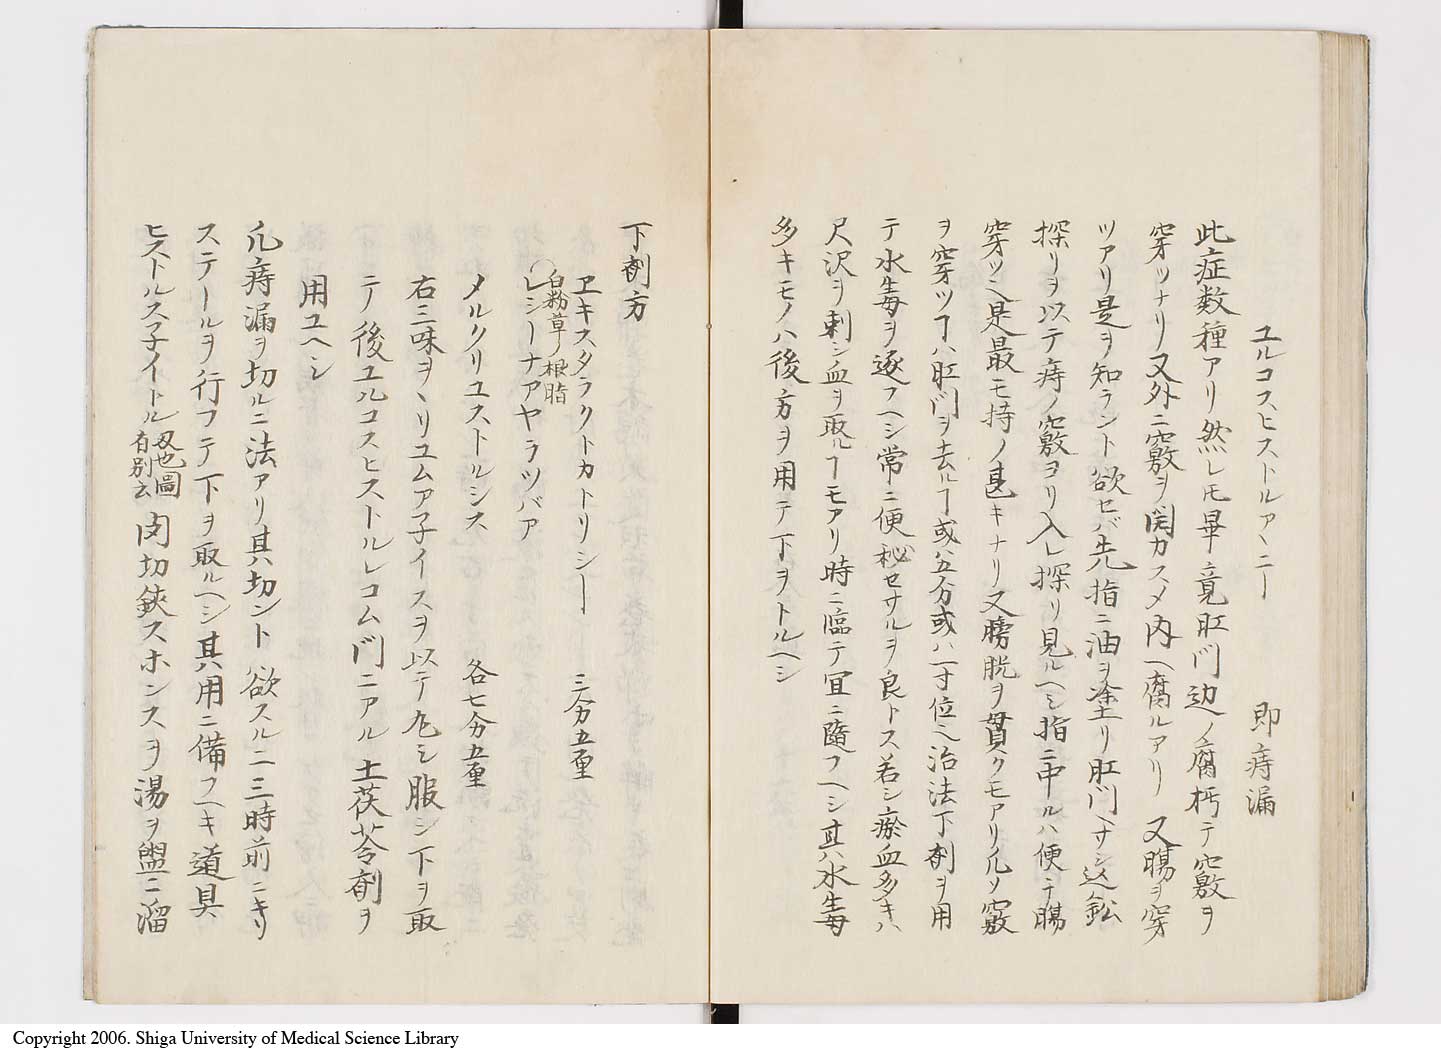 ユルコスヒストルアヽニー 即痔漏
此症数種アリ然レ𪜈畢竟肛門边ノ腐朽テ竅ヲ
穿ツナリ又外ニ竅ヲ開カスメ内ヘ腐ルアリ又腸ヲ穿
ツアリ是ヲ知ラント欲セバ先指ニ油ヲ塗リ肛門ヘサシ込鉛
探リヲ以テ痔ノ竅ヨリ入レ探リ見ルヘシ指ニ中ルハ便チ腸
穿ツ也是最モ持ノ甚キナリ又膀胱ヲ貫クモアリ凡ソ竅
ヲ穿ツヿハ肛門ヲ去ルヿ或ハ五分或ハ一寸位也治法下剤ヲ用
テ水毒ヲ逐フヘシ常ニ便秘セサルヲ良トス若シ瘀血多キハ
尺沢ヲ刺シ血ヲ取ルヿモアリ時ニ臨テ宜ニ隨フヘシ其ハ水毒
多キモノハ後方ヲ用テ下ヲトルヘシ
下剤方
ヱキスタラクトカトリシー 三分五厘
白粉草ノ根脂
レシーナアヤラツバア
メルクリユストルシス 各七分五厘
右三味ヲヽリユムア子イスヲ以テ丸シ服シ下ヲ取
テ後ユルコスヒストルレコム門ニアル土茯苓剤ヲ
用ユヘシ
凡痔漏ヲ切ルニ法アリ其切ント欲スル二三時前ニキリ
ステールヲ行フテ下ヲ取ルヘシ其用ニ備フヘキ道具
ヒストルス子イトル 刄也圖有別云 肉切鋏スホンスヲ湯ヲ盥ニ溜
Copyright 2006. Shiga University of Medical Science Library